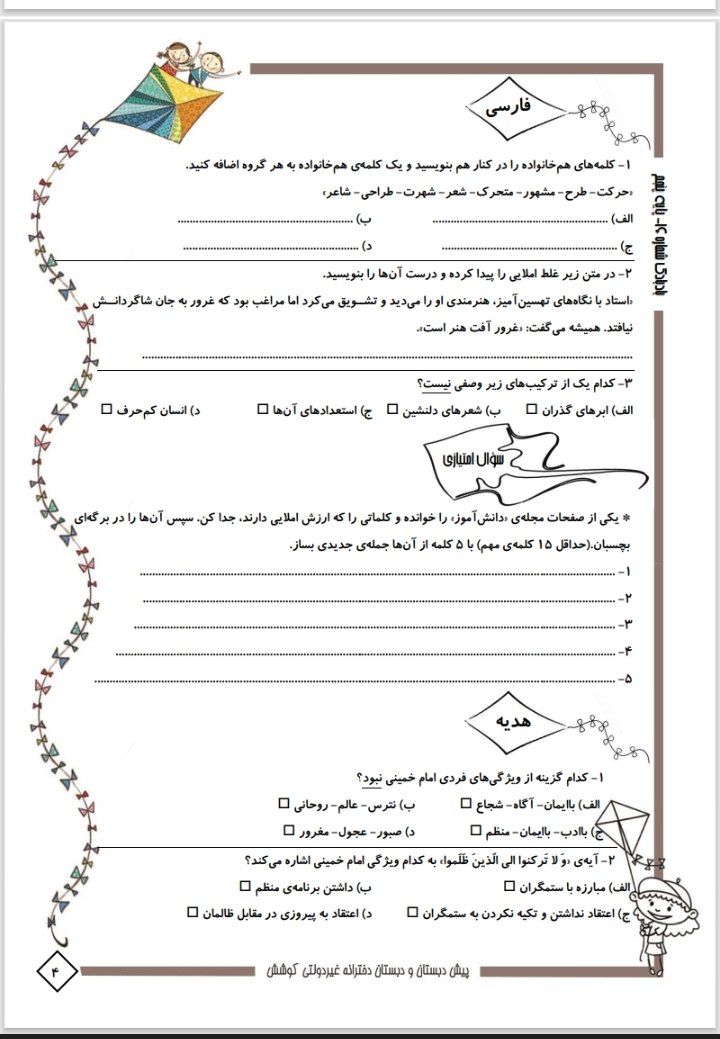 فارسی
۱- کلمه‌های هم‌خانواده را در کنار هم بنویسید و یک کلمه‌ی هم‌خانواده به هر گروه اضافه کنید.
«حرکت- طرح- مشهور- متحرک- شعر- شهرت- طراحی- شاعر»
الف) ........................................ ب) ........................................
ج) ........................................ د) ........................................
۲- در متن زیر غلط املایی را پیدا کرده و درست آن‌ها را بنویسید.
«استاد با نگاه‌های تهسین‌آمیز، هنرمندی او را می‌دید و تشـویق می‌کرد اما مراغب بود که غرور به جان شاگردانـش
نیافتد. همیشه می‌گفت: «غرور آفت هنر است».
........................................
۳- کدام یک از ترکیب‌های زیر وصفی نیست؟
الف) ابرهای گذران □ ب) شعرهای دلنشین □ ج) استعدادهای آن‌ها □ د) انسان کم‌حرف □
سؤال امتیازی
* یکی از صفحات مجله‌ی «دانش‌آموز» را خوانده و کلماتی را که ارزش املایی دارند، جدا کن. سپس آن‌ها را در برگه‌ای
بچسبان.(حداقل ۱۵ کلمه‌ی مهم) با ۵ کلمه از آن‌ها جمله‌ی جدیدی بساز.
۱- ........................................
۲- ........................................
۳- ........................................
۴- ........................................
۵- ........................................
هدیه
۱- کدام گزینه از ویژگی‌های فردی امام خمینی نبود؟
الف) باایمان- آگاه- شجاع □ ب) نترس- عالم- روحانی □
ج) باادب- باایمان- منظم □ د) صبور- عجول- مغرور □
۲- آیه‌ی «وَ لا تَرکنوا الی الّذینَ ظَلَموا» به کدام ویژگی امام خمینی اشاره می‌کند؟
الف) مبارزه با ستمگران □ ب) داشتن برنامه‌ی منظم □
ج) اعتقاد نداشتن و تکیه نکردن به ستمگران □ د) اعتقاد به پیروزی در مقابل ظالمان □
پیش دبستان و دبستان دخترانه غیردولتی کوشش
۴